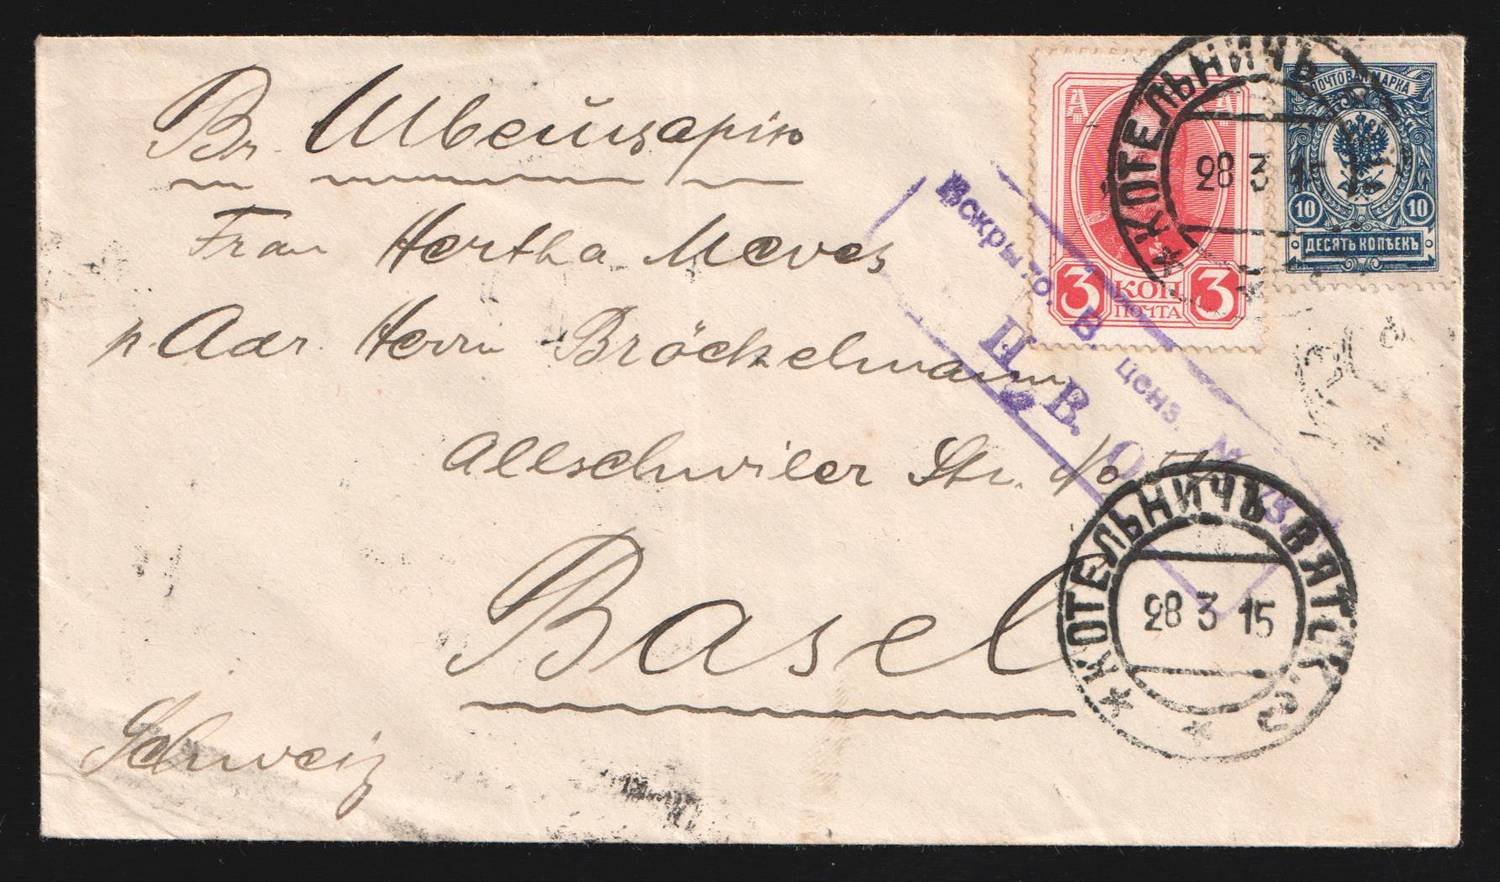 Въ Швейцарію
Frau Hertha Meves
p Adr. Herrn Bröckelmann
Allschwiler Str.
Basel
Schweiz
3 КОП 3
ПОЧТА
ПОЧТОВАЯ МАРКА
10 10
ДЕСЯТЬ КОПѢЕКЪ
КОТЕЛЬНИЧЪ
28 3
Вскрыто. В. ценз.
П. В. О.
КОТЕЛЬНИЧЪ ВЯТСК
28 3 15